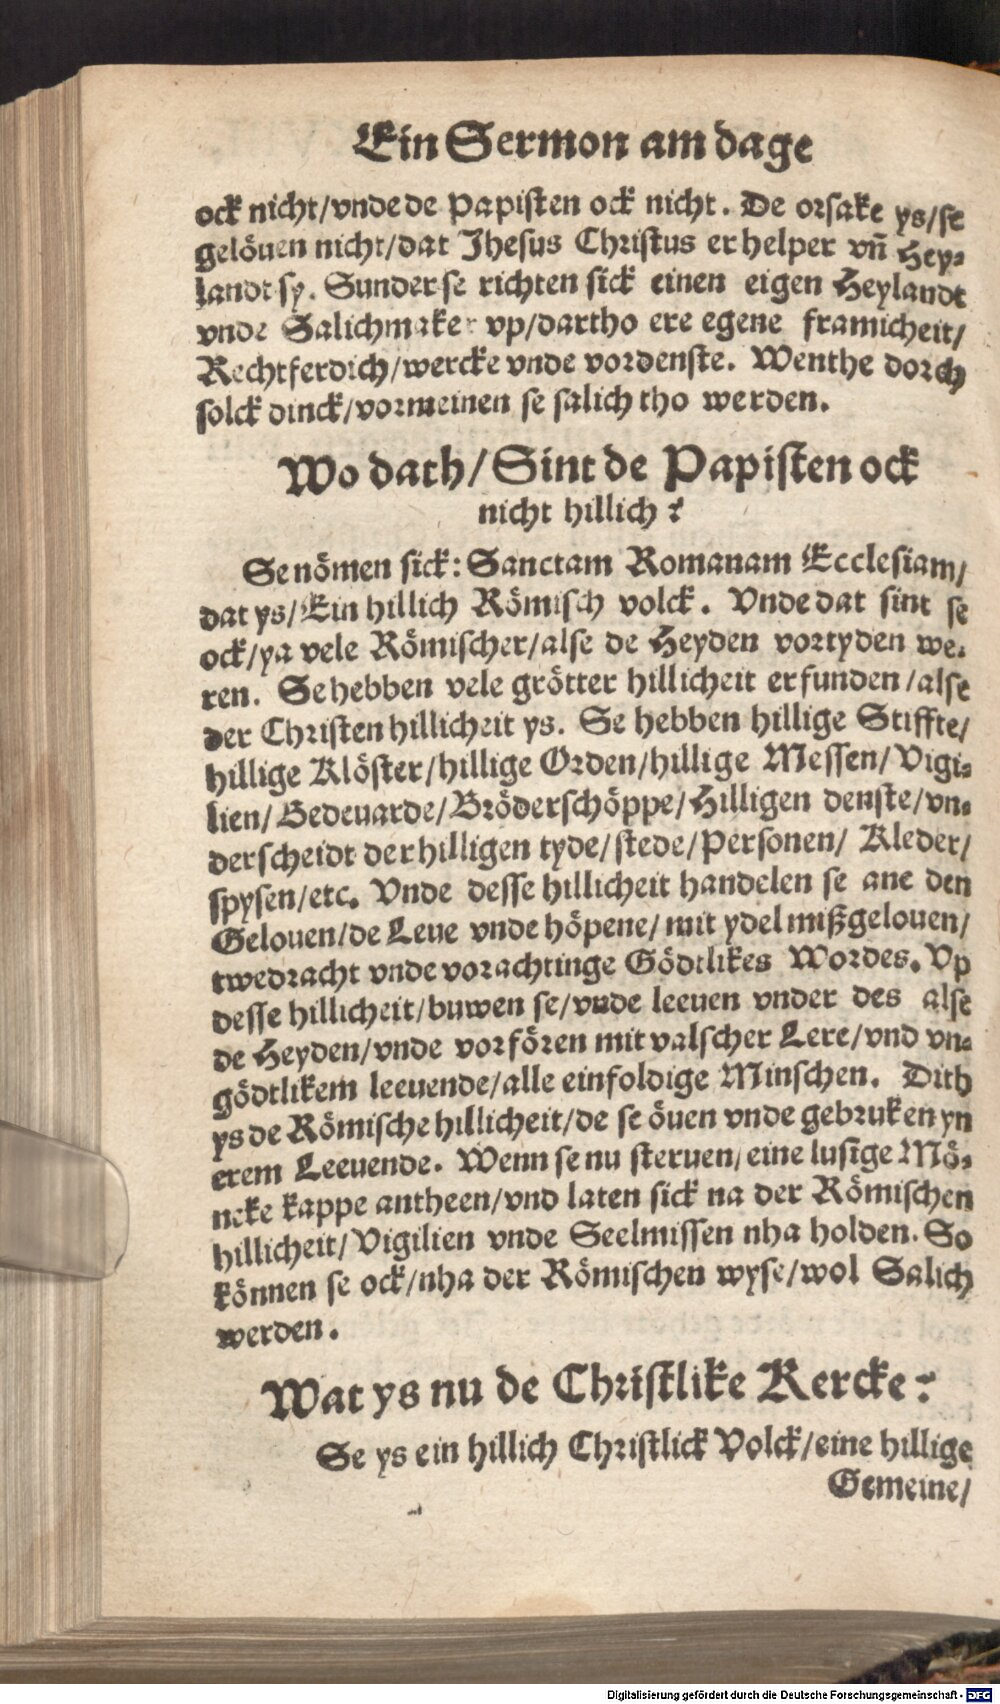 Ein Sermon am dage
ock nicht/vnde de Papisten ock nicht. De orsake ys/se
gelöuen nicht/dat Jhesus Christus er helper vñ Hey⸗
landt sy. Sunder se richten sick einen eigen Heylandt
vnde Salichmaker vp/dartho ere egene framicheit/
Rechtferdich/wercke vnde vordenste. Wenthe dorch
solck dinck/vormeinen se salich tho werden.
Wo dath/Sint de Papisten ock
nicht hillich?
Se nömen sick: Sanctam Romanam Ecclesiam/
dat ys/Ein hillich Römisch volck. Vnde dat sint se
ock/ya vele Römischer/alse de Heyden vortyden we⸗
ren. Se hebben vele grötter hillicheit erfunden/alse
der Christen hillicheit ys. Se hebben hillige Stiffte/
hillige Klöster/hillige Orden/hillige Messen/Vigi⸗
lien/Bedeuarde/Bröderschöppe/Hilligen denste/vn⸗
derscheidt der hilligen tyde/stede/Personen/ Kleder/
spysen/etc. Vnde desse hillicheit handelen se ane den
Gelouen/de Leue vnde höpene/mit ydel mißgelouen/
twedracht vnde vorachtinge Gödtlikes Wordes. Vp
desse hillicheit/buwen se/vnde leeuen vnder des alse
de Heyden/vnde vorfören mit valscher Lere/vnd vn⸗
gödtlikem leeuende/alle einfoldige Minschen. Dith
ys de Römische hillicheit/de se öuen vnde gebruken yn
erem Leeuende. Wenn se nu steruen/eine lusige Mö⸗
neke kappe antheen/vnd laten sick na der Römischen
hillicheit/Vigilien vnde Seelmissen nha holden. So
können se ock/nha der Römischen wyse/wol Salich
werden.
Wat ys nu de Christlike Kercke?
Se ys ein hillich Christlick Volck/eine hillige
Gemeine/
Digitalisierung gefördert durch die Deutsche Forschungsgemeinschaft - DFG